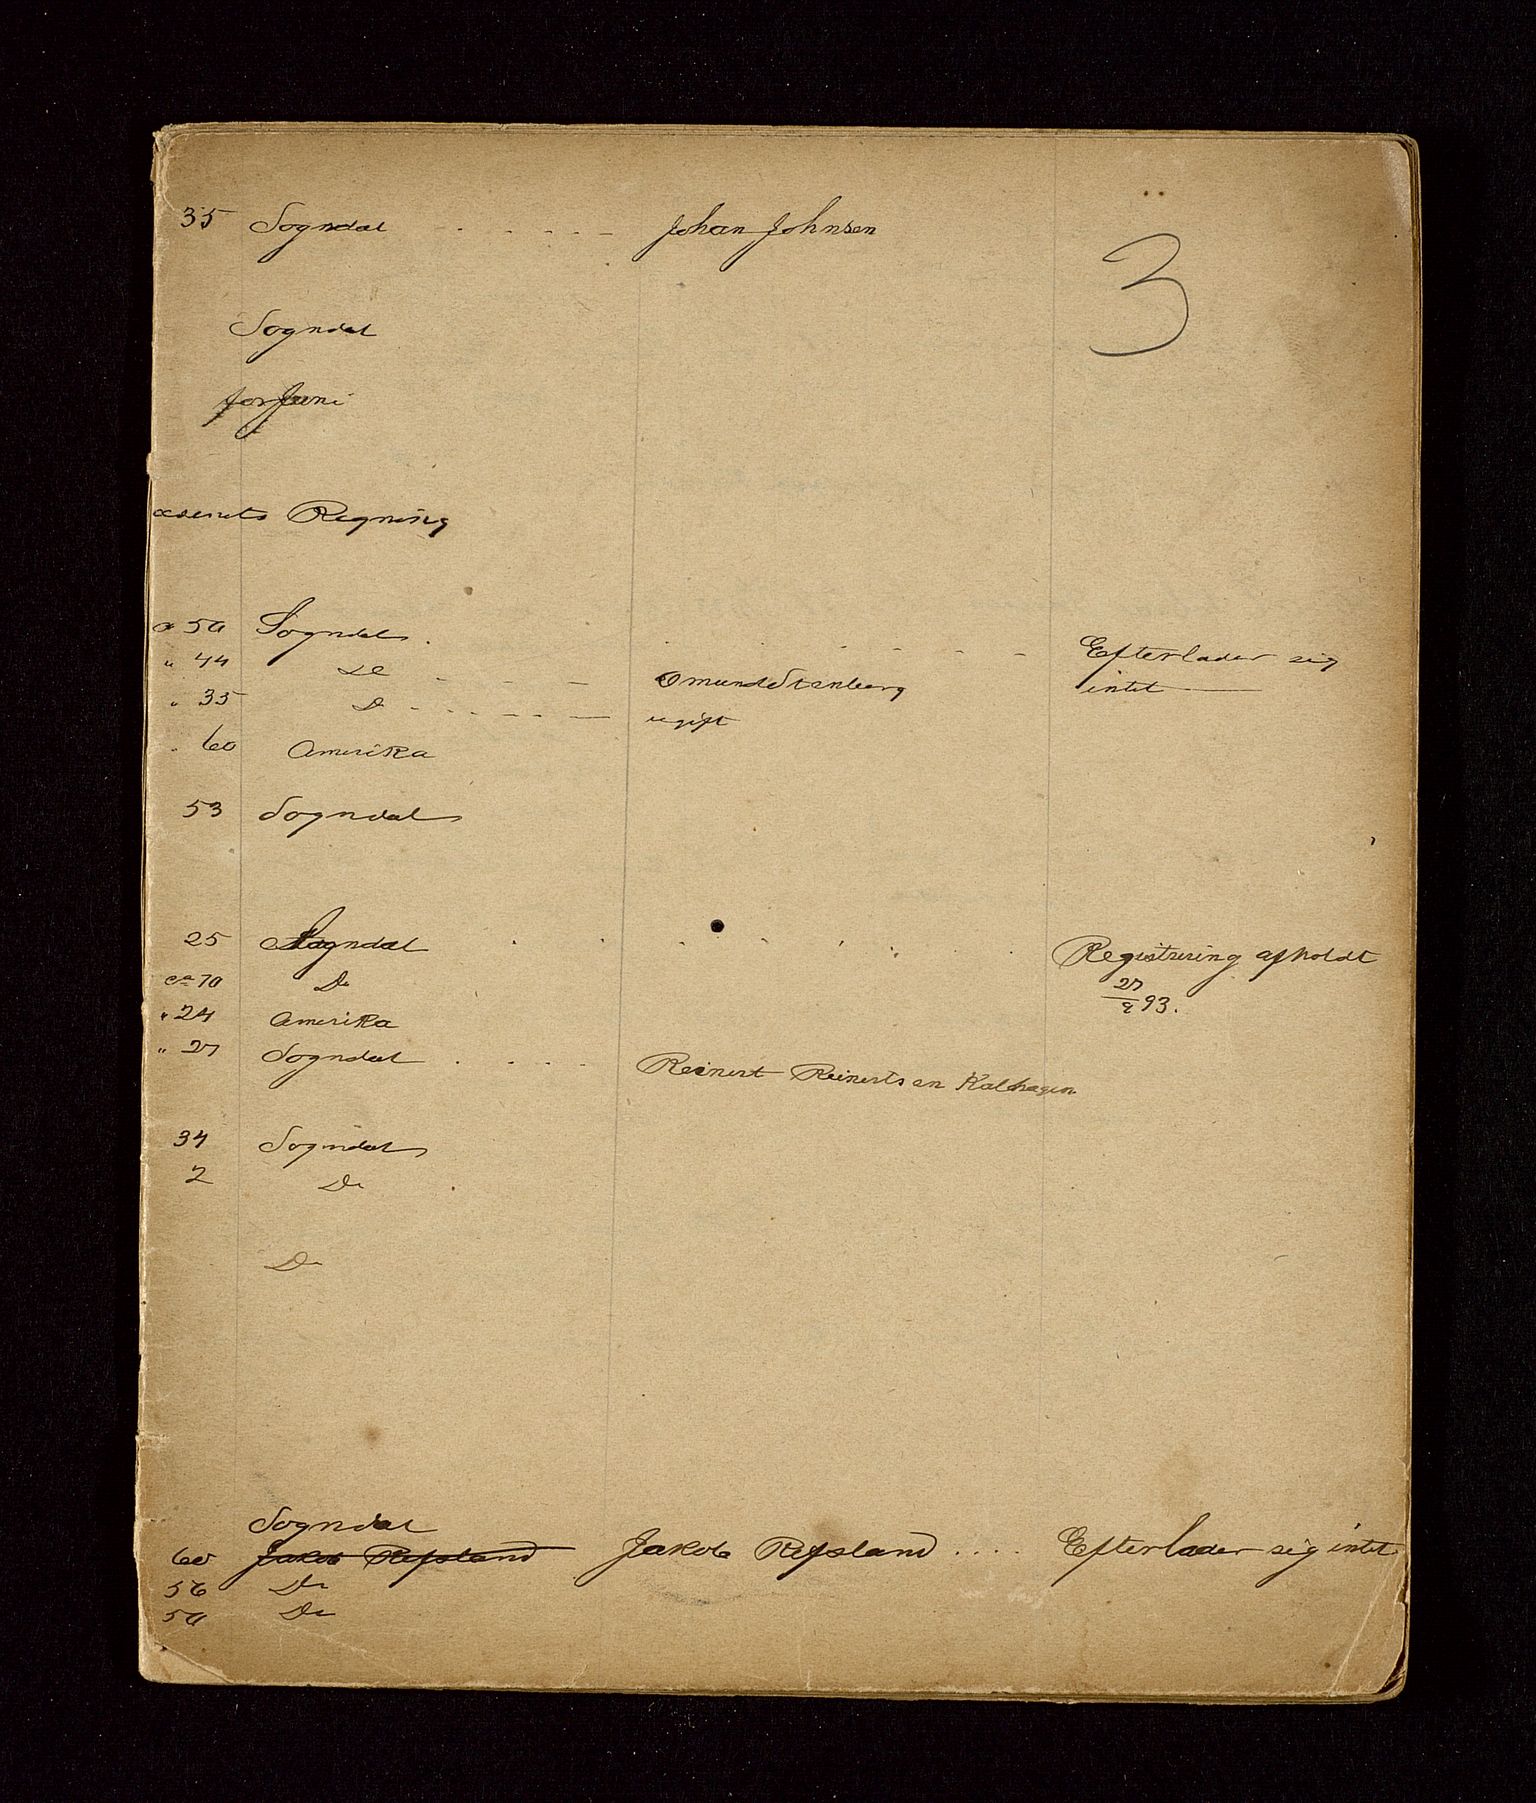 35 Sogndal - - - - - - Johan Johnsen
3
Sogndal
for Juni
Regning
50 Sogndal . - - - - Efterlader sig
" 44 Do - - - - Omund Stenberg intet
" 35 Do - - - - - ugift
" 60 Amerika
53 Sogndal
25 Sogndal . . . . . . Registrering afholdt
ca 70 Do 27/9 93.
" 24 Amerika
" 27 Sogndal . - - - Reinert Reinertsen Kalhagen
34 Sogndal
2 Do
Do
Sogndal
60 Jakob Refsland Jakob Refsland .... Efterlader sig intet
56 Do
50 Do